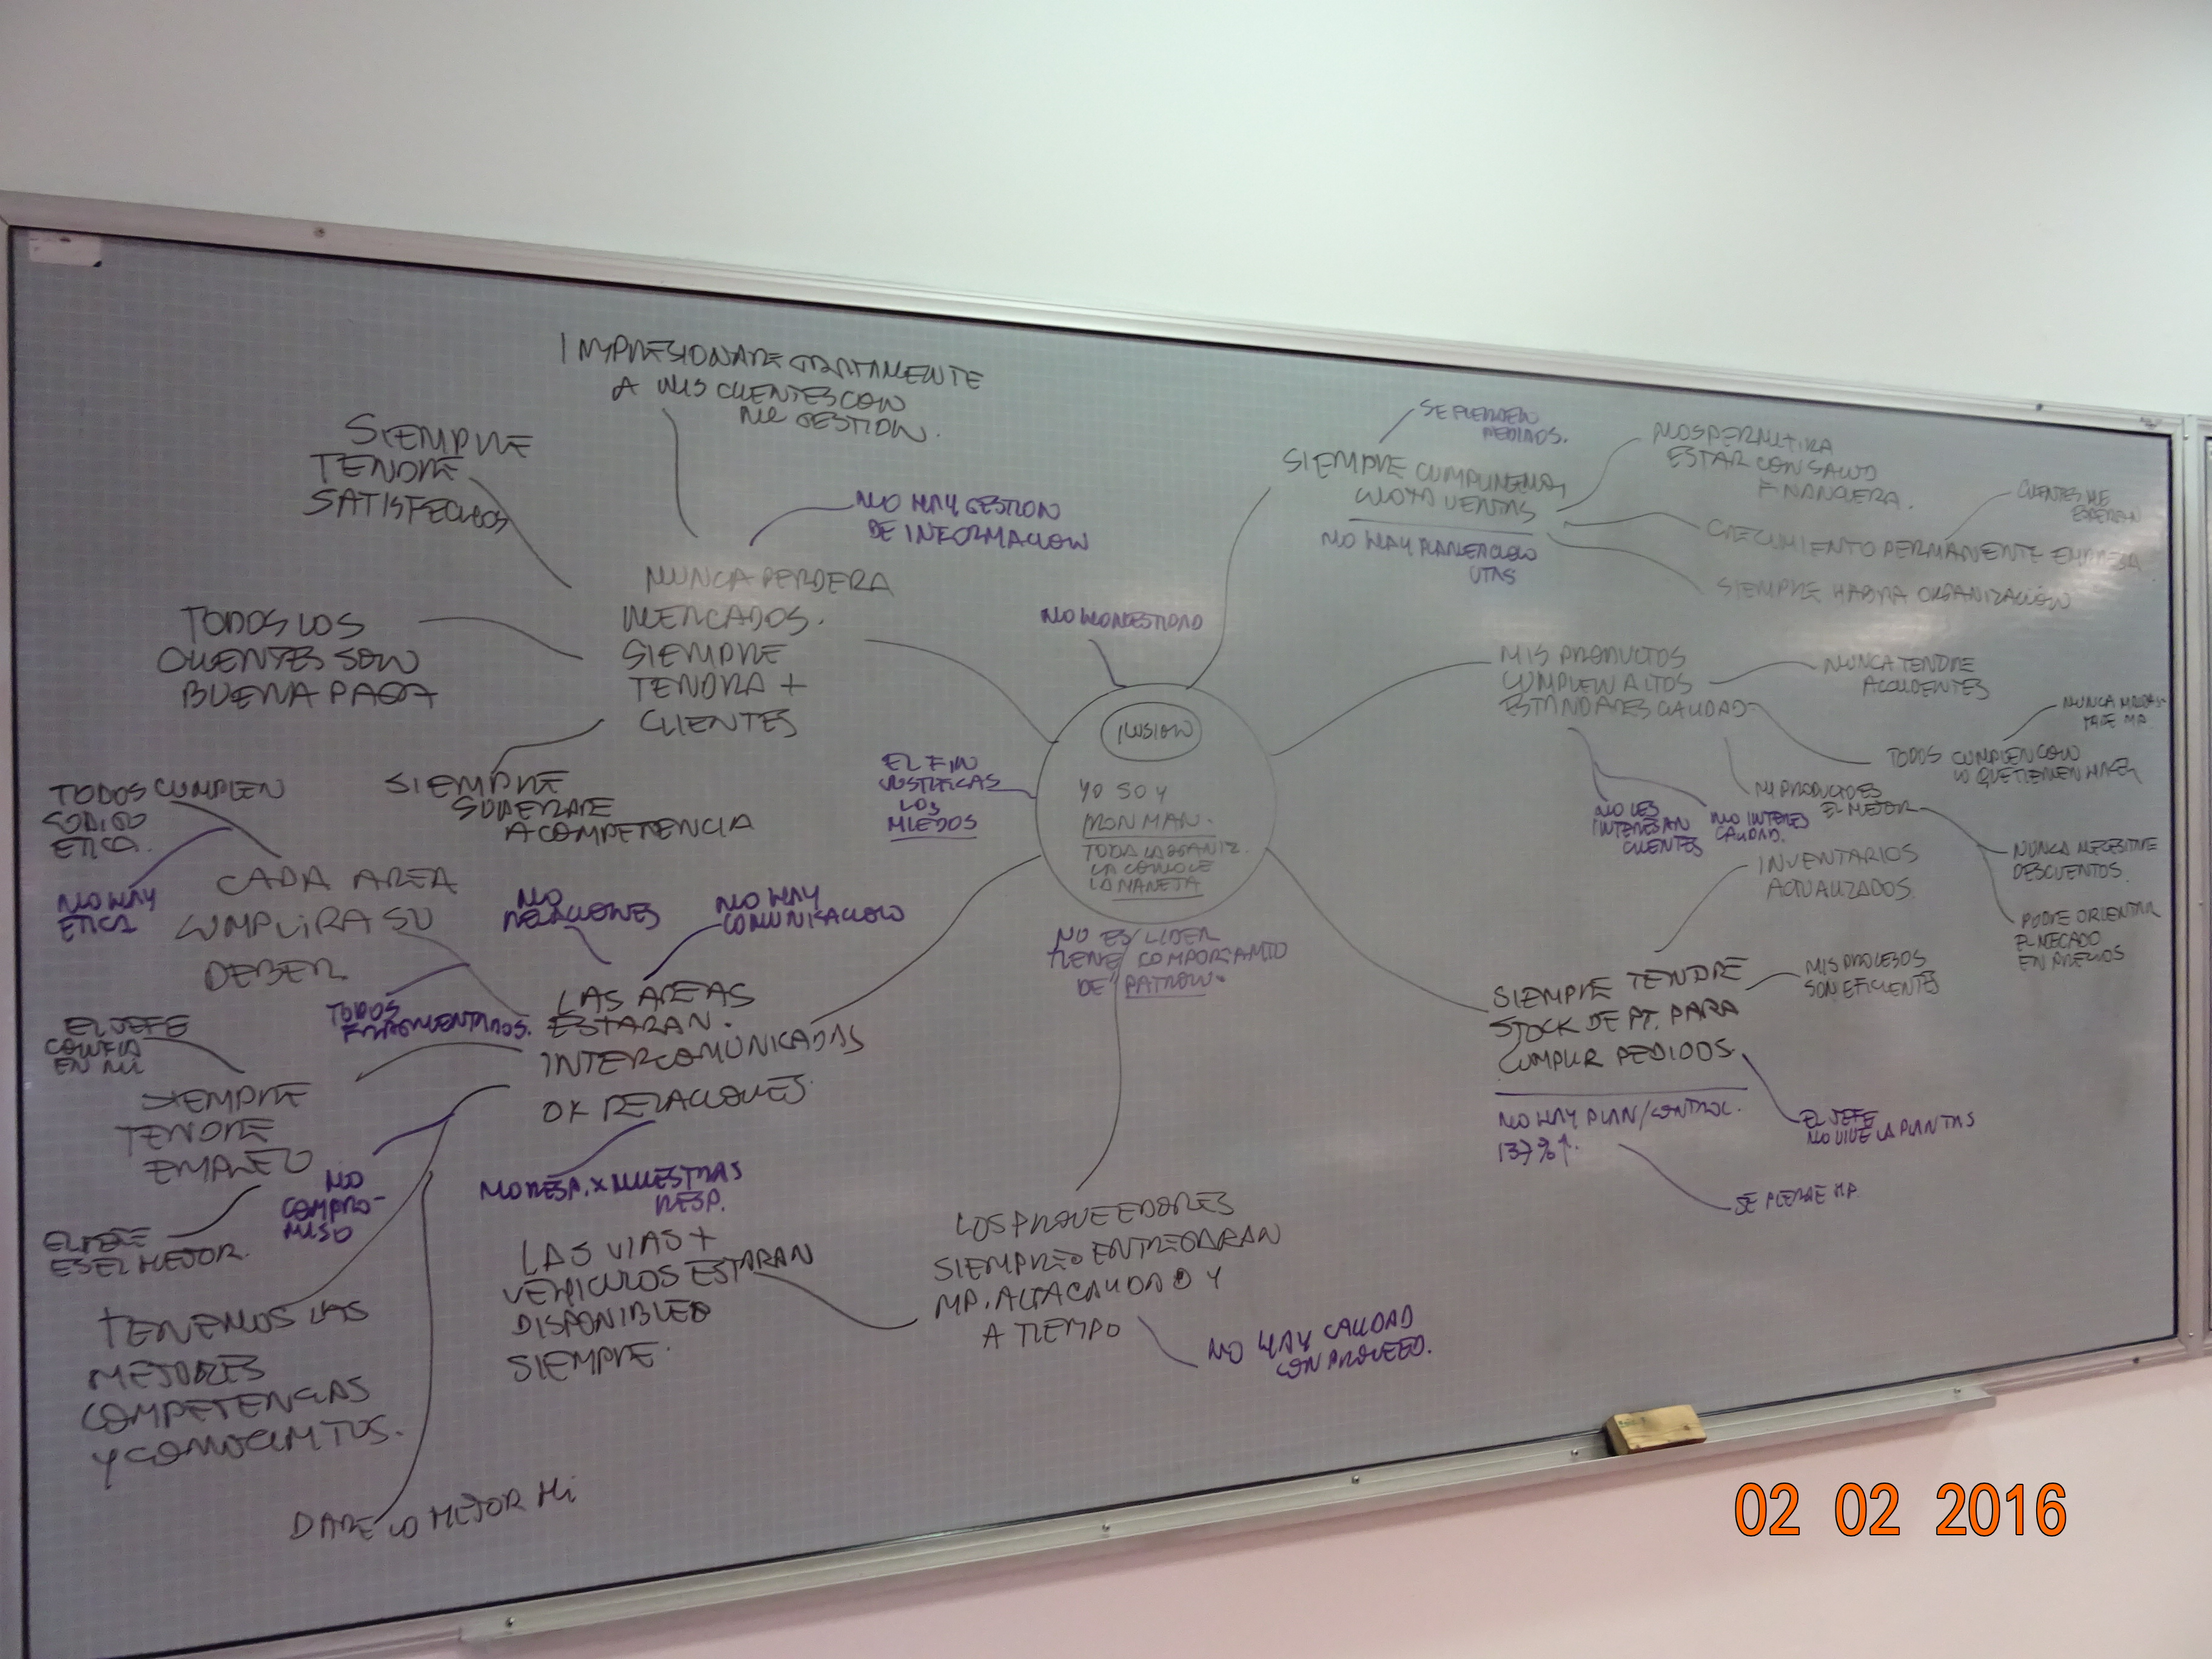 IMPRESIONARE GRATAMENTE
A MIS CLIENTES CON
MI GESTION.
SIEMPRE
TENDRE
SATISFECHOS
NO HAY GESTION
DE INFORMACION
NUNCA PERDERA
MERCADOS.
SIEMPRE
TENDRA +
CLIENTES
TODOS LOS
CLIENTES SON
BUENA PAGA
SIEMPRE
SUPERARE
A COMPETENCIA
SE PIERDEN
PEDIDOS.
SIEMPRE CUMPLIREMOS
CUOTA VENTAS
NO HAY PLANEACION
VTAS
NOS PERMITIRA
ESTAR CON SALUD
FINANCIERA.
CLIENTES ME
ESPERAN
CRECIMIENTO PERMANENTE EMPRESA
SIEMPRE HABRA ORGANIZACIÓN
NO HONESTIDAD
ILUSION
YO SOY
IRON MAN.
TODA LA ORGANIZ.
LA CONOCE
LA MANEJA
EL FIN
JUSTIFICAS
LOS
MIEDOS
NO ES LIDER
TIENE COMPORTAMTO
DE PATRON.
MIS PRODUCTOS
CUMPLEN ALTOS
ESTANDARES CALIDAD
NUNCA TENDRE
ACCIDENTES
TODOS CUMPLEN CON
LO QUE TIENEN HACER
MI PRODUCTO ES
EL MEJOR
NO LES
INTERESAN
CLIENTES
NO INTERES
CALIDAD.
NUNCA NECESITARE
DESCUENTOS.
PODRE ORIENTAR
EL MECADO
EN PRECIOS
INVENTARIOS
ACTUALIZADOS.
SIEMPRE TENDRE
STOCK DE PT. PARA
CUMPLIR PEDIDOS.
MIS PROCESOS
SON EFICIENTES
NO HAY PLAN/CONTROL.
137%↑.
EL JEFE
NO VIVE LA PLANTAS
SE PIERDE MP
TODOS CUMPLEN
CODIGO
ETICA.
NO HAY
ETICA
CADA AREA
CUMPLIRA SU
DEBER
NO
RELACIONES
NO HAY
COMUNICACION
TODOS
FRAGMENTADOS.
LAS AREAS
ESTARAN.
INTERCOMUNICADAS
OK RELACIONES.
EL JEFE
CONFIA
EN MI
SIEMPRE
TENDRE
EMPLEO
EL JEFE
ES EL MEJOR.
NO
COMPRO-
MISO
NO RESP. X NUESTRAS
RESP.
TENEMOS LAS
MEJORES
COMPETENCIAS
Y CONOCIMTOS.
DARE LO MEJOR MI
LAS VIAS +
VEHICULOS ESTARAN
DISPONIBLES
SIEMPRE.
LOS PROVEEDORES
SIEMPRE ENTREGARAN
MP. ALTA CALIDAD Y
A TIEMPO
NO HAY CALIDAD
CON PROVEED.
02 02 2016